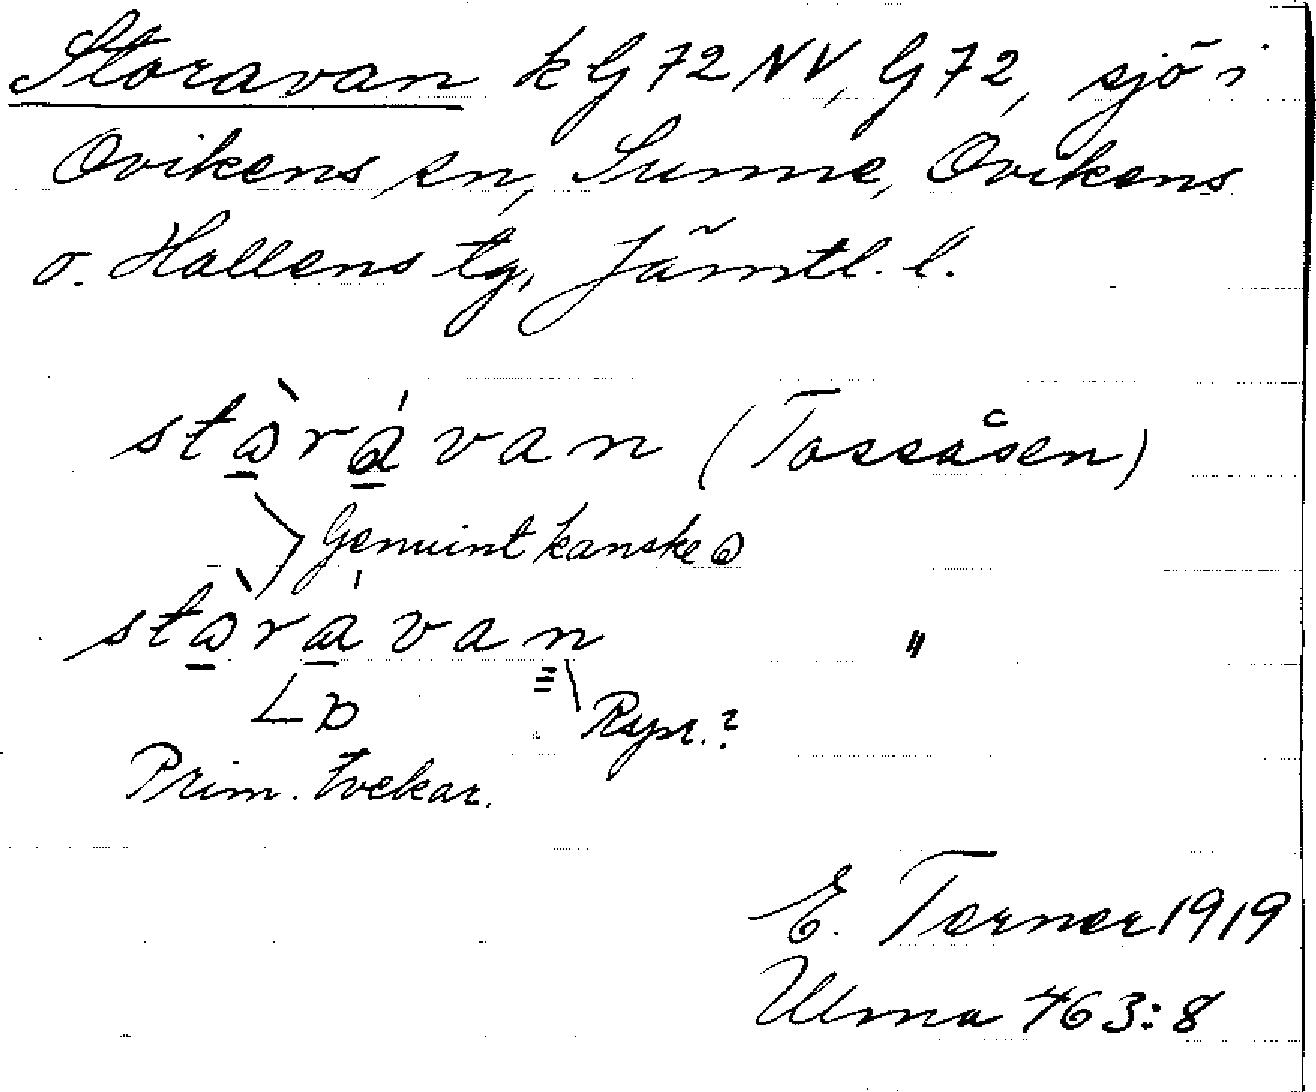 Storavan k G 72 NV, G 72, sjö i
Ovikens sn, Sunne, Ovikens
o. Hallens tg, Jämtl. l.
stòrávan (Tossåsen)
Genuint kanske
stòrávan "
Rspr.?
Prim. tvekar.
E. Torner 1919
Ulma 463:8